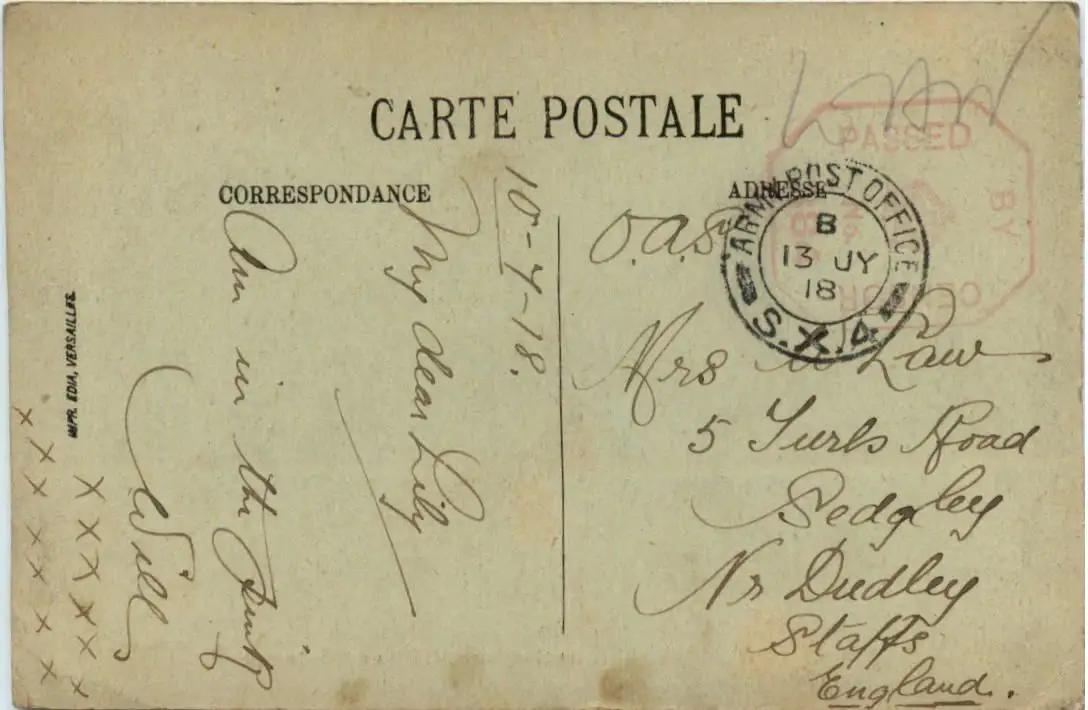 CARTE POSTALE
CORRESPONDANCE
ADRESSE
10-7-18.
My dear Lily
Am in the
Will
x x x x x x x
x x x x x x
O.A.S.
Mrs W Law
5 Turls Road
Sedgley
Nr Dudley
Staffs
England.
ARMY POST OFFICE
B
13 JY
18
S.X.4
PASSED BY
CENSOR
IMPR. EDIA, VERSAILLES.